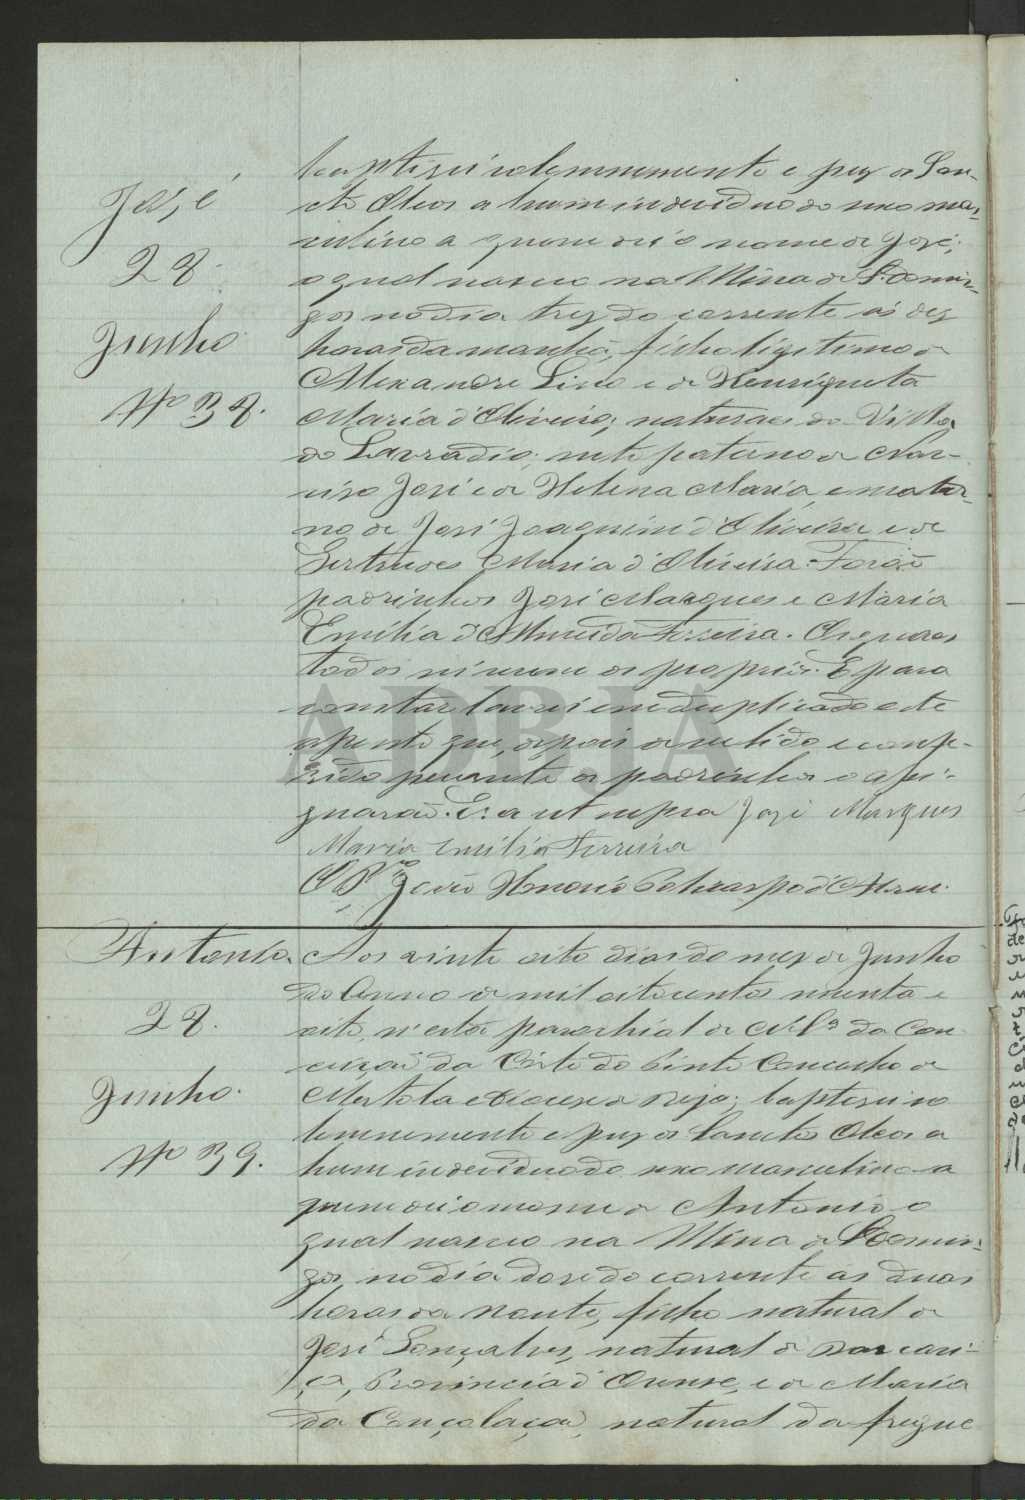 José
28
Junho
Nº 38.
baptisei solemnemente e puz os San-
ctos Oleos a hum individuo do sexo mas-
culino a quem dei o nome de José,
o qual nasceu na Mina de S. Domin-
gos no dia trez do corrente ás dez
horas da manhã, filho ligitimo de
Alexandre Lino e de Henriqueta
Maria d'Oliveira, naturaes da Villa
do Lavradio; neto paterno de Nar-
ciso José e de Helena Maria, e mater-
no de José Joaquim d'Oliveira e de
Gertrudes Maria d'Oliveira. Forão
padrinhos José Marques e Maria
Emilia d'Almeida Ferreira. Os quaes
todos sei serem os proprios. E para
constar lavrei em duplicado este
assento que, depois de ser lido e confe-
rido perante os padrinhos o assi-
gnarão. Era ut supra José Marques
Maria Emilia Ferreira
O P João Honorio d'
Antonio.
28.
Junho.
Nº 39.
Aos vinte oito dias do mez de Junho
do Anno de mil oitocentos noventa e
oito, n'esta parochial de N. Sª da Con-
ceição da Côrte do Pinto Concelho de
Mertola Diocese de Beja; baptisei so
lemnemente e puz os Sanctos Oleos a
hum individuo do sexo masculino a
quem dei o nome de Antonio o
qual nasceu na Mina de S. Domin-
gos, no dia doze do corrente ás duas
horas da noute, filho natural de
José Gonçalves, natural de
Provincia d'Orense, e de Maria
da Conçolação, natural da fregue
ADBJA